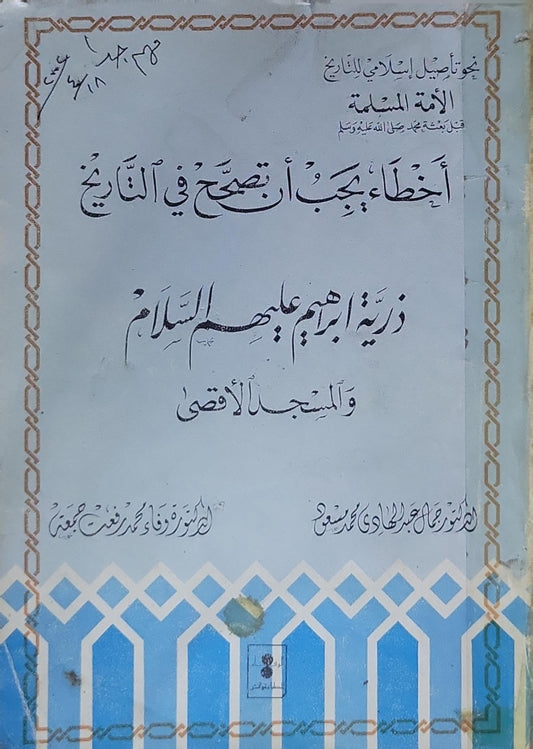 مهم جدا
نحو تأصيل إسلامي للتاريخ
الأمة المسلمة
قبل بعثة محمد صلى الله عليه وسلم
أخطاء يجب أن تصحح في التاريخ
ذرية ابراهيم عليهم السلام
والمسجد الأقصى
الدكتور جمال عبد الهادى محمد مسعود
الدكتورة وفاء محمد رفعت جمعة